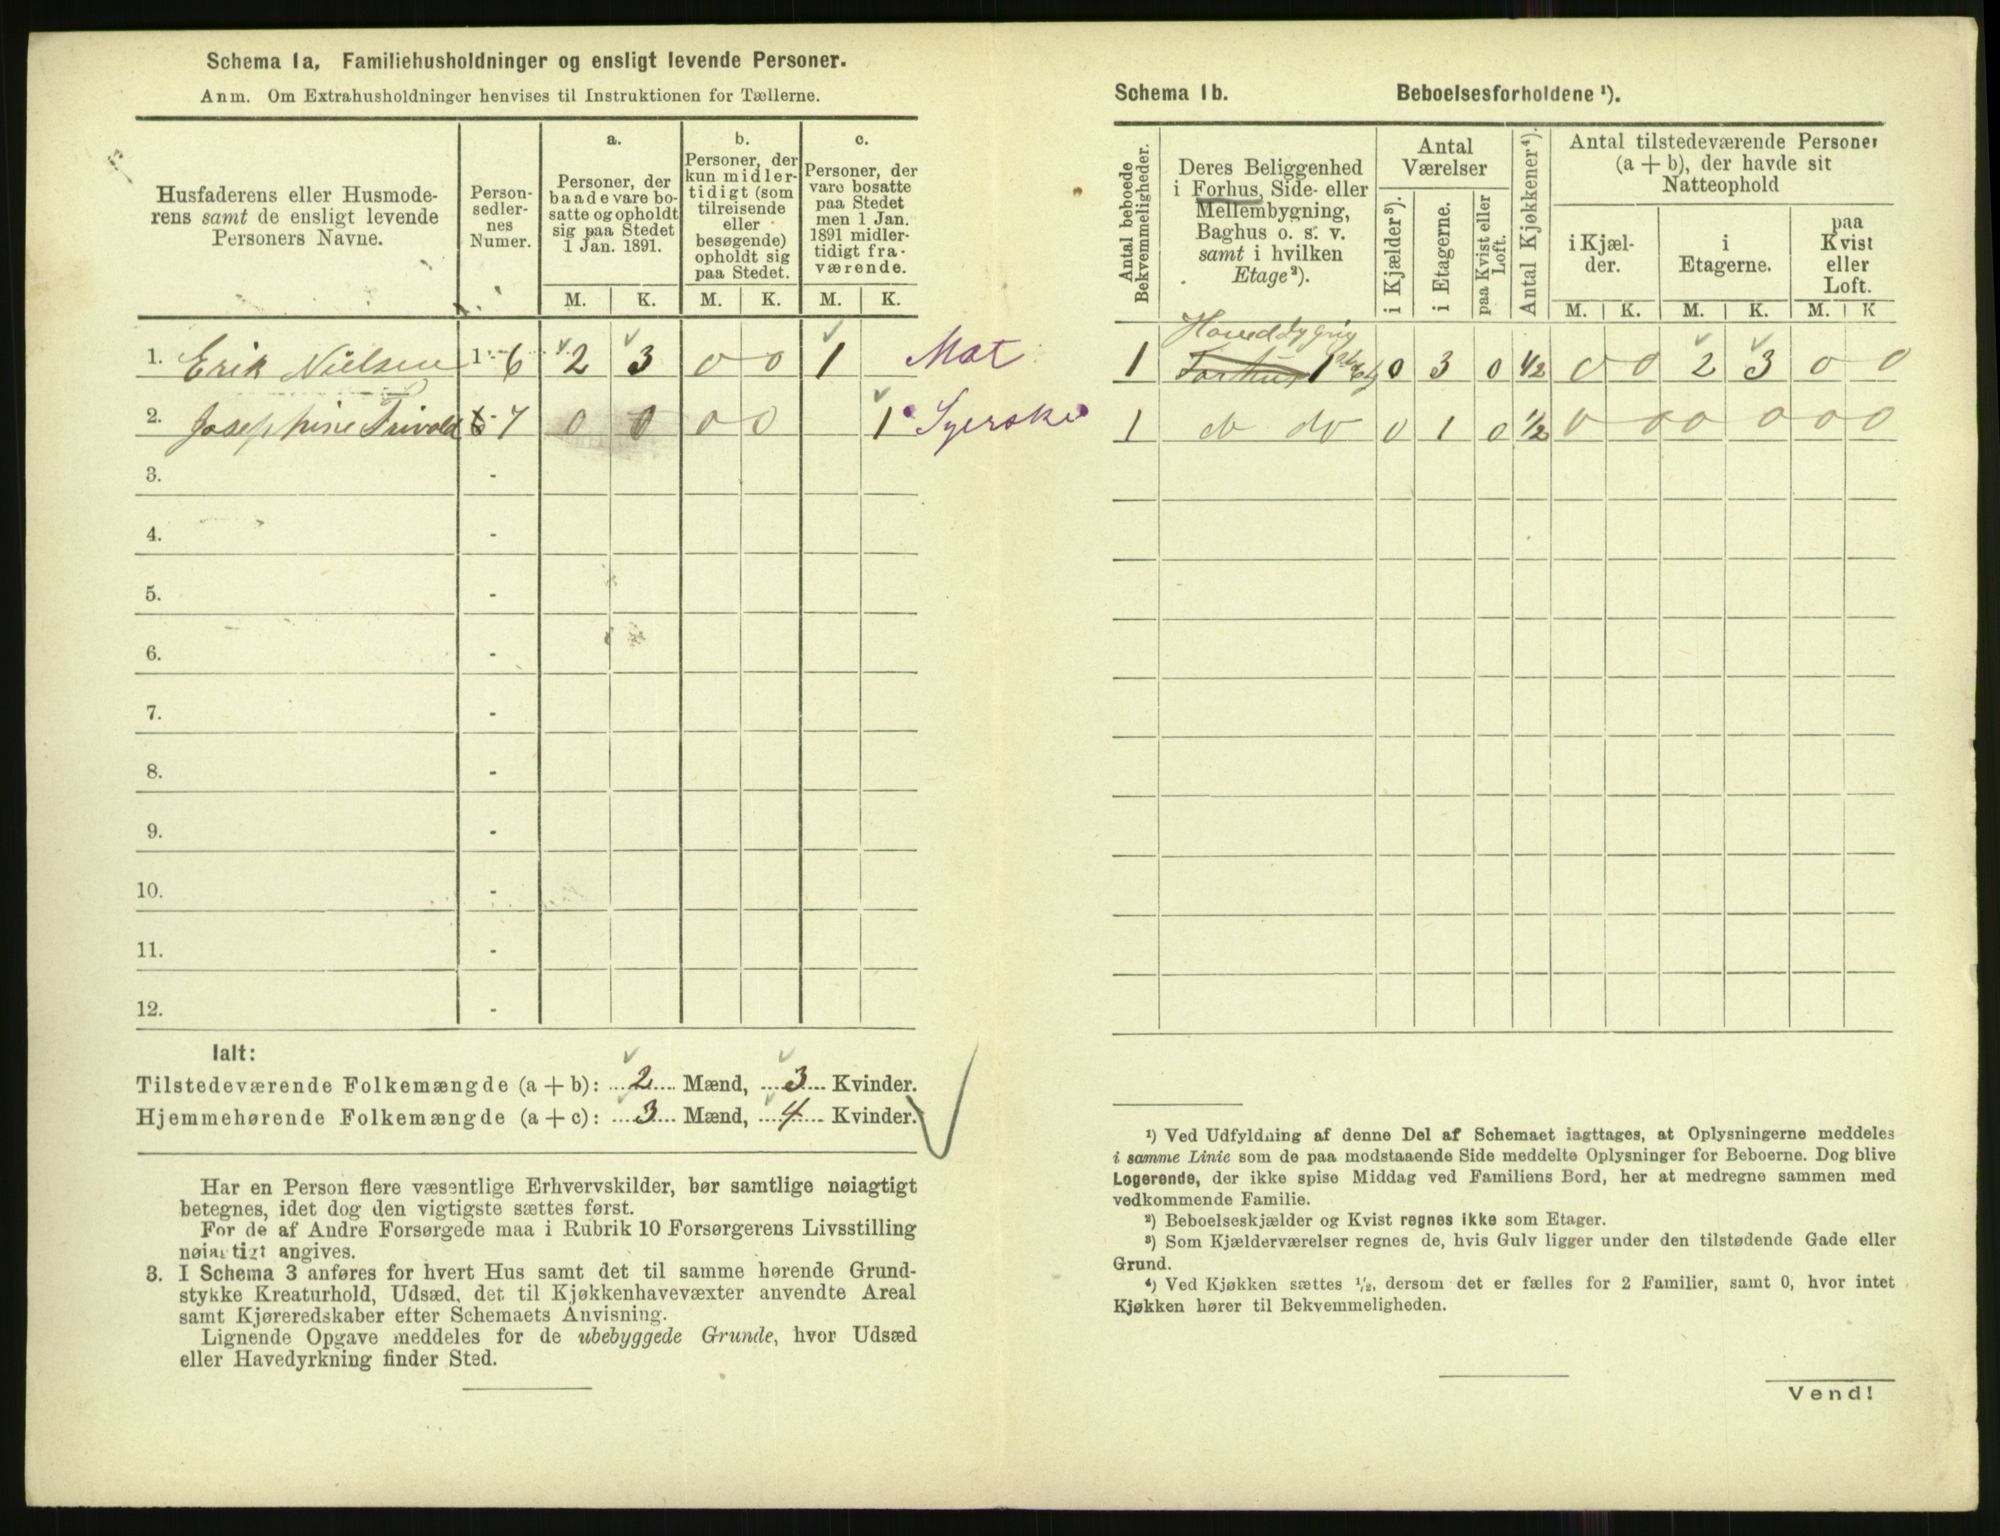 Schema 1a. Familiehusholdninger og ensligt levende Personer.
Anm. Om Extrahusholdninger henvises til Instruktionen for Tællerne.
Husfaderens eller Husmode-
rens samt de ensligt levende
Personers Navne.
Person-
sedler-
nes
Numer.
a.
Personer, der
baade vare bo-
satte og opholdt
sig paa Stedet
1 Jan. 1891.
b.
Personer, der
kun midler-
tidigt (som
tilreisende
eller
besøgende)
opholdt sig
paa Stedet.
c.
Personer, der
vare bosatte
paa Stedet
men 1 Jan.
1891 midler-
tidigt fra-
værende.
M. K. M. K. M. K.
1. Erik Nielsen 1 - 6 2 3 0 0 1 Mat
2. Josephine 7 0 0 0 0 1 Syerske
3. -
4. -
5. -
6. -
7. -
8. -
9. -
10. -
11. -
12. -
Ialt:
Tilstedeværende Folkemængde (a + b): 2 Mænd, 3 Kvinder.
Hjemmehørende Folkemængde (a + c): 3 Mænd, 4 Kvinder.
Har en Person flere væsentlige Erhvervskilder, bør samtlige nøiagtigt
betegnes, idet dog den vigtigste sættes først.
For de af Andre Forsørgede maa i Rubrik 10 Forsørgerens Livsstilling
nøiagtigt angives.
3. I Schema 3 anføres for hvert Hus samt det til samme hørende Grund-
stykke Kreaturhold, Udsæd, det til Kjøkkenhavevæxter anvendte Areal
samt Kjøreredskaber efter Schemaets Anvisning.
Lignende Opgave meddeles for de ubebyggede Grunde, hvor Udsæd
eller Havedyrkning finder Sted.
Schema 1b. Beboelsesforholdene ¹).
Antal beboede
Bekvemmeligheder.
Deres Beliggenhed
i Forhus, Side- eller
Mellembygning,
Baghus o. s. v.
samt i hvilken
Etage²).
Antal
Værelser
i Kjælder³).
i Etagerne.
paa Kvist eller
Loft.
Antal Kjøkkener⁴).
Antal tilstedeværende Personer
(a + b), der havde sit
Natteophold
i Kjæl-
der.
i
Etagerne.
paa
Kvist
eller
Loft.
M. K. M. K. M. K
1 Forhus 1 0 3 0 1/2 0 0 2 3 0 0
1 do do 0 1 0 1/2 0 0 0 0 0 0
¹) Ved Udfyldning af denne Del af Schemaet iagttages, at Oplysningerne meddeles
i samme Linie som de paa modstaaende Side meddelte Oplysninger for Beboerne. Dog blive
Logerende, der ikke spise Middag ved Familiens Bord, her at medregne sammen med
vedkommende Familie.
²) Beboelseskjælder og Kvist regnes ikke som Etager.
³) Som Kjælderværelser regnes de, hvis Gulv ligger under den tilstødende Gade eller
Grund.
⁴) Ved Kjøkken sættes ½, dersom det er fælles for 2 Familier, samt 0, hvor intet
Kjøkken hører til Bekvemmeligheden.
Vend!